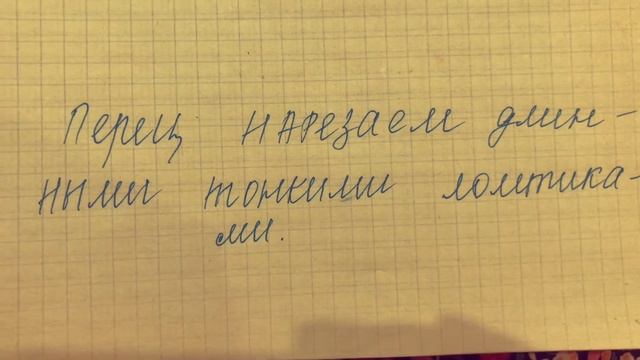 Перец нарезаем длин-
ными тонкими ломтика-
ми.